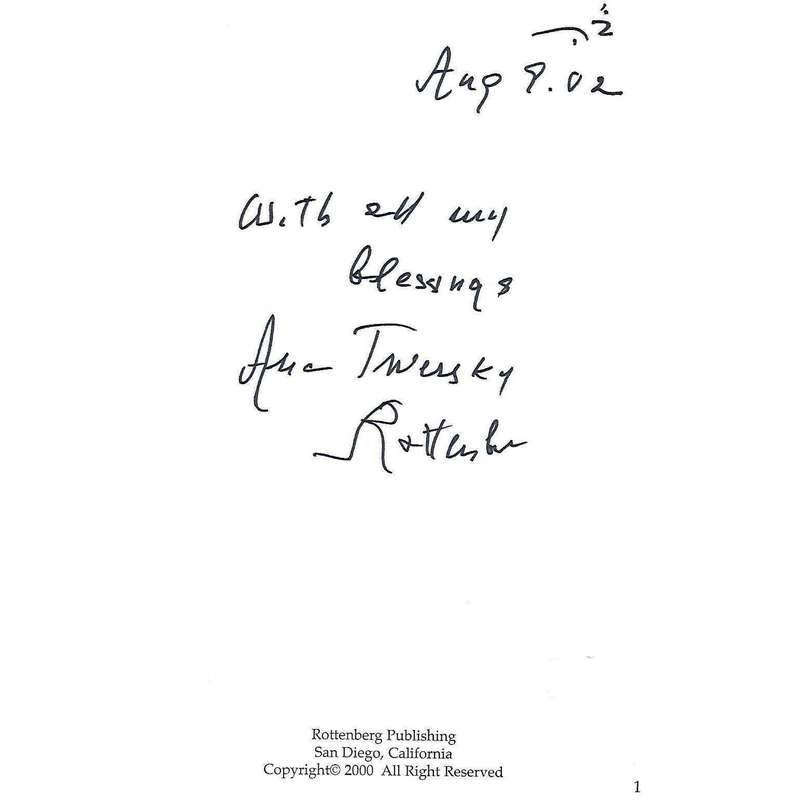 Aug 9.02
With all my
blessings
Twersky
Rottenberg Publishing
San Diego, California
Copyright© 2000 All Right Reserved
1